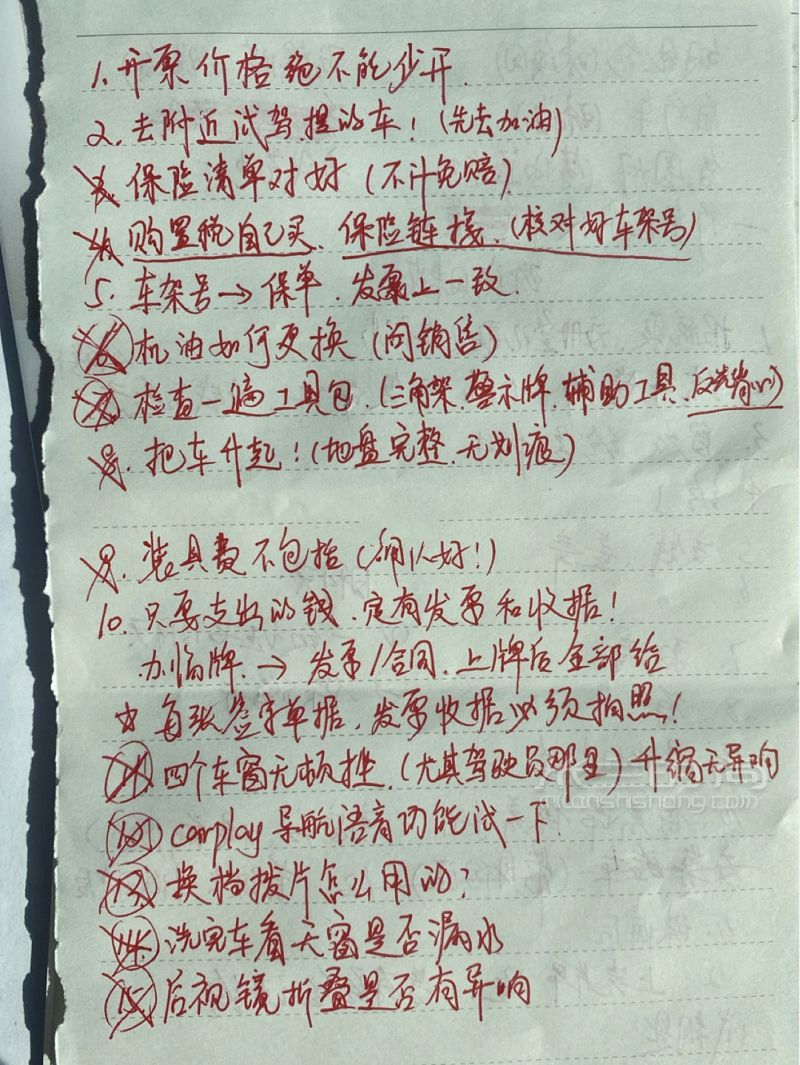 1. 开票价格绝不能少开.
2. 去附近试驾提的车！(先去加油)
3. 保险清单对好 (不计免赔)
4. 购置税自己买、保险链接. (核对好车架号)
5. 车架号→保单、发票上一致.
6. 机油如何更换 (问销售)
7. 检查一遍工具包. (三角架. 警示牌. 辅助工具. 反光背心)
8. 把车升起！(地盘完整. 无划痕)
9. 装具费不包括 (确认好！)
10. 只要支出的钱、定有发票和收据！
办临牌. → 发票/合同. 上牌后全部给
☆ 每张签字单据、发票收据必须拍照！
11. 四个车窗无顿挫. (尤其驾驶员那里) 升缩无异响
12. carplay 导航语音功能试一下
13. 换档拨片怎么用的？
14. 洗完车看天窗是否漏水
15. 后视镜折叠是否有异响
nilanshishang.com